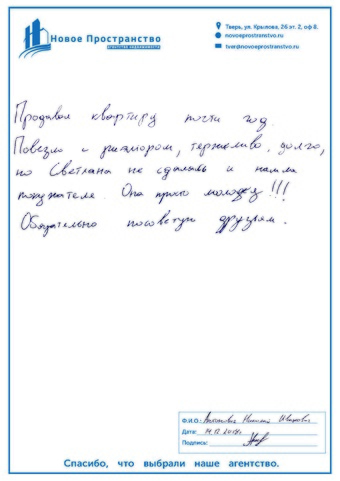 Новое Пространство
агентство недвижимости
Тверь, ул. Крылова, 26 эт. 2, оф 8.
novoeprostranstvo.ru
tver@novoeprostranstvo.ru
Продавал квартиру почти год.
Повезло с риэлтором, терпеливо, долго,
но Светлана не сдалась и нашла
покупателя. Она просто молодец!!!
Обязательно посоветую друзьям.
Ф.И.О.:
Дата:
Подпись:
Спасибо, что выбрали наше агентство.